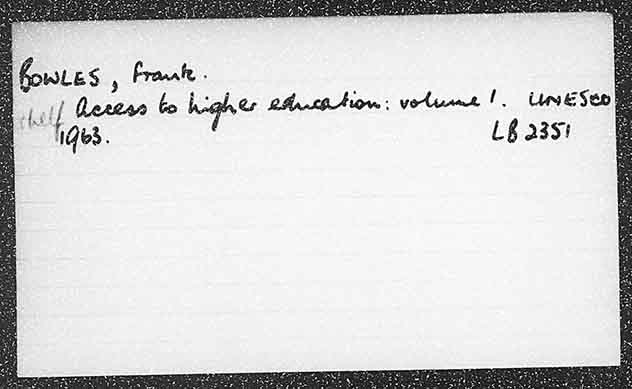 BOWLES, Frank.
shelf Access to higher education: volume 1. UNESCO
1963. LB 2351